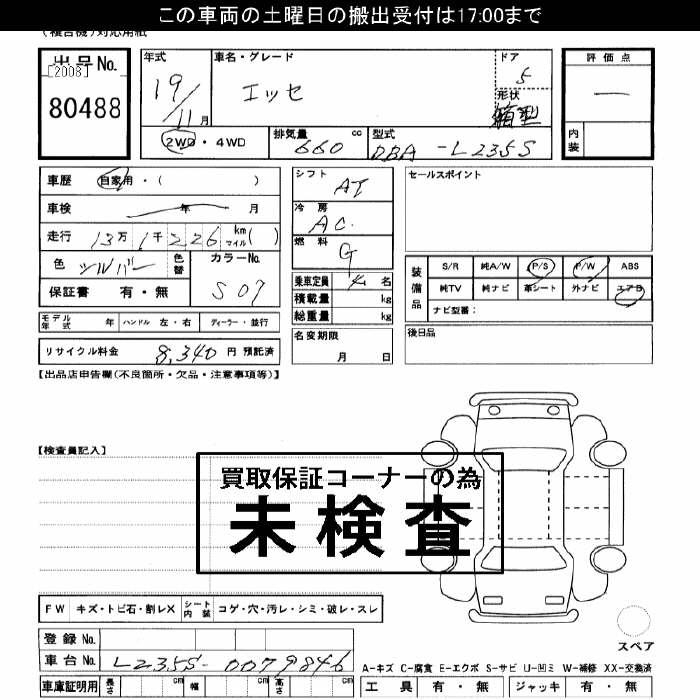 この車両の土曜日の搬出受付は17:00まで
(複合機)対応用紙
出品No.
[2008]
80488
年式 車名・グレード ドア 評価点
19/11月 エッセ 5 —
形状 箱型
2WD・4WD 排気量 660 cc 型式 DBA-L235S 内装
車歴 自家用・( )
車検 年 月
走行 13万1千226 km マイル( )
色 シルバー 色替 カラーNo. S07
保証書 有・無
モデル年式 年 ハンドル 左・右 ディーラー・並行
リサイクル料金 8,340円 預託済
シフト AT
冷房 AC.
燃料 G
乗車定員 4名
積載量 kg
総重量 kg
名変期限
月 日
セールスポイント
装備品 S/R 純A/W P/S P/W ABS
純TV 純ナビ 革シート 外ナビ エアB
ナビ型番:
後日品
【出品店申告欄(不良箇所・欠品・注意事項等)】
【検査員記入】
買取保証コーナーの為
未検査
FW キズ・トビ石・割レX シート内装 コゲ・穴・汚レ・シミ・破レ・スレ
スペア
登録No.
車台No. L235S-0079846
A-キズ C-腐食 E-エクボ S-サビ U-凹ミ W-補修 XX-交換済
車庫証明用 長さ cm 幅 cm 高さ cm 工具 有・無 ジャッキ 有・無